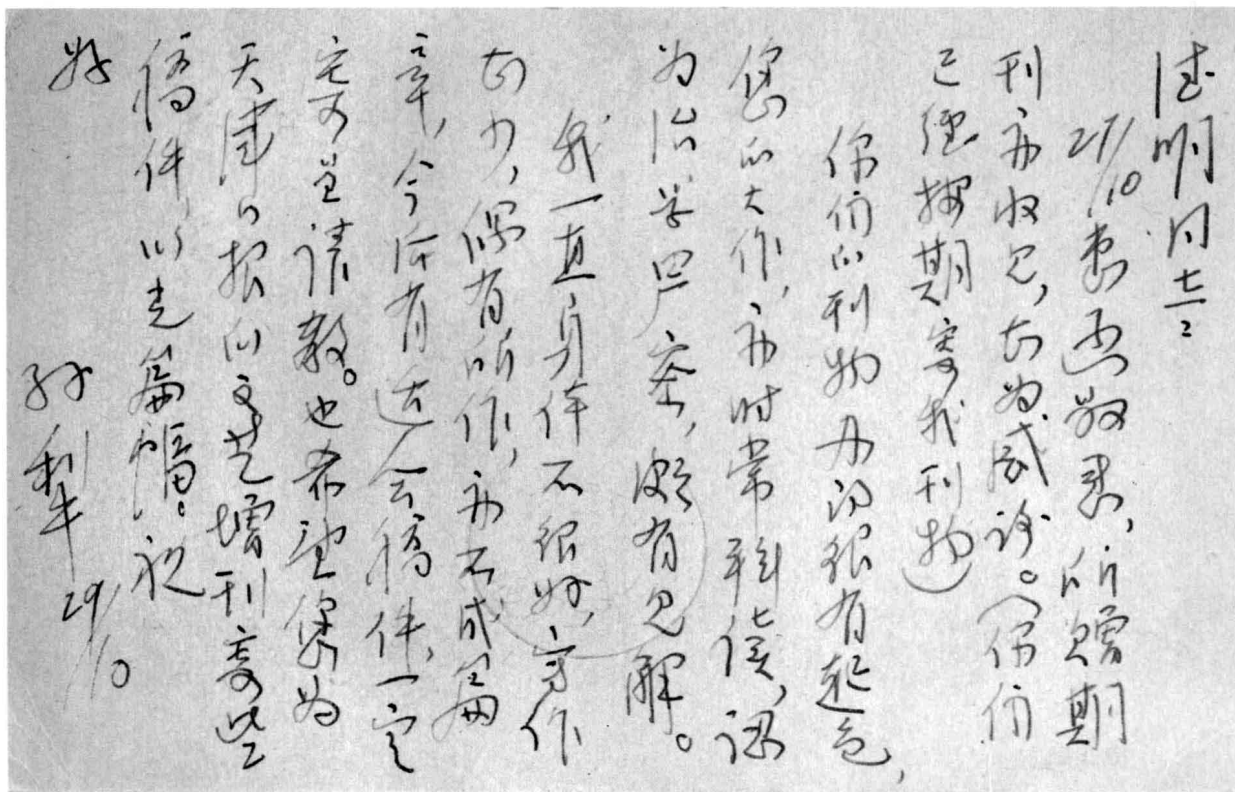 德明同志：
27/10惠函敬悉，所赠期
刊亦收见，甚为感谢。（你们
已经按期寄我刊物）
你们的刊物办的很有起色，
您的大作，亦时常拜读，认
为治学严密，颇有见解。
我一直身体不很好，写作
甚少，偶有所作，亦不成篇
章，今后有适合稿件，一定
寄呈请教。也希望您为
天津日报的文艺增刊寄些
稿件，以光篇幅。祝
好
孙犁 29/10